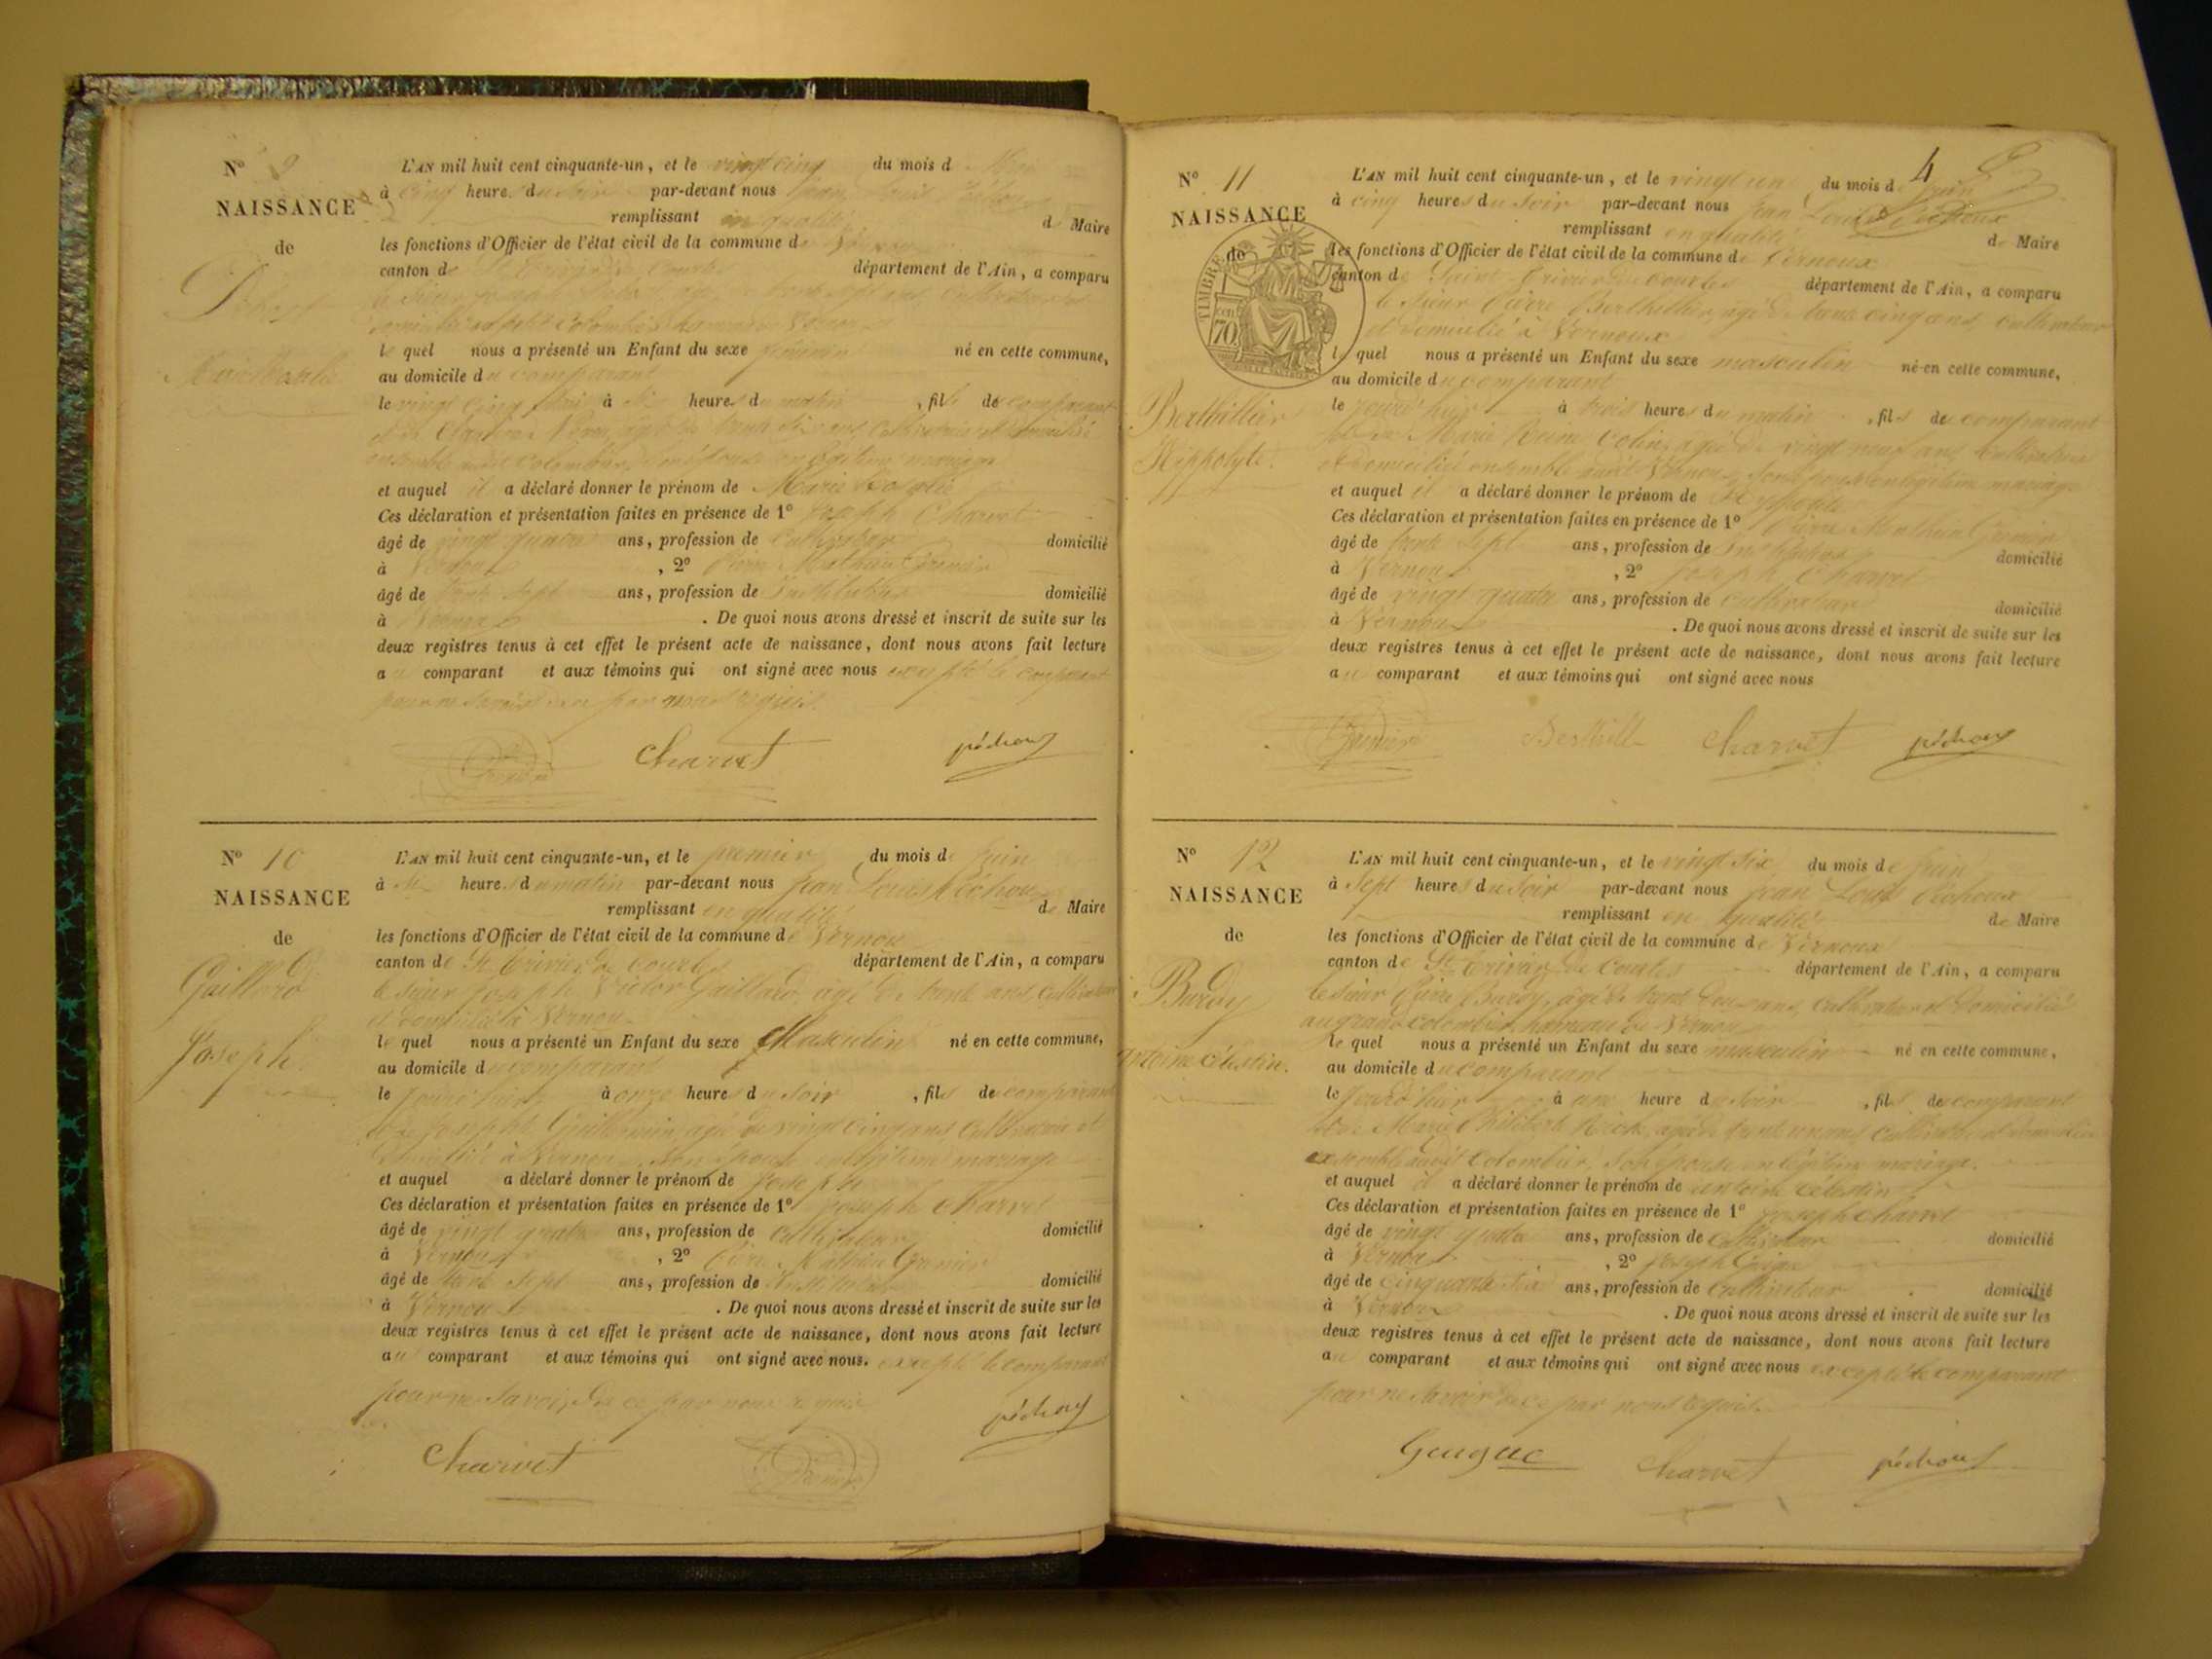 N° 9
NAISSANCE
de
Marie Rosalie
L'AN mil huit cent cinquante-un, et le vingt cinq du mois d
à cinq heure. du soir par-devant nous Jean Louis
remplissant en qualité de Maire
les fonctions d'Officier de l'état civil de la commune d
canton de département de l'Ain, a comparu
le sieur
le quel nous a présenté un Enfant du sexe féminin né en cette commune,
au domicile du comparant
le vingt cinq à heures du matin, fil de comparant
et auquel il a déclaré donner le prénom de Marie Rosalie
Ces déclaration et présentation faites en présence de 1° Joseph Charvet
âgé de vingt quatre ans, profession de Cultivateur domicilié
à Vernoux, 2° Pierre Mathieu Grenier
âgé de trente sept ans, profession de Instituteur domicilié
à Vernoux. De quoi nous avons dressé et inscrit de suite sur les
deux registres tenus à cet effet le présent acte de naissance, dont nous avons fait lecture
au comparant et aux témoins qui ont signé avec nous excepté le comparant
pour ne savoir de ce par nous requis.
Charvet péchoux
N° 10
NAISSANCE
de
Gaillard
Joseph
L'AN mil huit cent cinquante-un, et le premier du mois de juin
à heures du matin par-devant nous Jean Louis Péchoux
remplissant en qualité de Maire
les fonctions d'Officier de l'état civil de la commune de Vernoux
canton de St Trivier de Courtes département de l'Ain, a comparu
le sieur Joseph Victor Gaillard, agé de trente ans, Cultivateur
et domicilié à Vernoux
le quel nous a présenté un Enfant du sexe Masculin né en cette commune,
au domicile du comparant
le à onze heures du soir, fils de comparant
et de Josephte Guillermin, agée de vingt cinq ans, Cultivatrice et
domiciliée à Vernoux son épouse en légitime mariage
et auquel a déclaré donner le prénom de Joseph
Ces déclaration et présentation faites en présence de 1° Joseph Charvet
âgé de vingt quatre ans, profession de Cultivateur domicilié
à Vernoux, 2° Pierre Mathieu Grenier
âgé de trente sept ans, profession de Instituteur domicilié
à Vernoux. De quoi nous avons dressé et inscrit de suite sur les
deux registres tenus à cet effet le présent acte de naissance, dont nous avons fait lecture
au comparant et aux témoins qui ont signé avec nous. excepté le comparant
pour ne savoir de ce par nous requis
péchoux
Charvet
4
N° 11
NAISSANCE
de
TIMBRE
70 cen
Berthillier
Hippolyte.
L'AN mil huit cent cinquante-un, et le vingt un du mois de juin
à cinq heures du soir par-devant nous Jean Louis Péchoux
remplissant en qualité de Maire
les fonctions d'Officier de l'état civil de la commune de Vernoux
canton de Saint Trivier de Courtes département de l'Ain, a comparu
le Sieur Pierre Berthillier, agé de trente cinq ans, cultivateur
et domicilié à Vernoux
le quel nous a présenté un Enfant du sexe masculin né en cette commune,
au domicile du comparant
le jourd'hui à trois heures du matin, fils de comparant
et de Marie Reine Colin, agée de vingt neuf ans, cultivatrice
et domiciliée ensemble audit Vernoux, son épouse en légitime mariage
et auquel il a déclaré donner le prénom de Hyppolite
Ces déclaration et présentation faites en présence de 1° Pierre Mathieu Grenier
âgé de trente sept ans, profession de Instituteur domicilié
à Vernoux, 2° Joseph Charvet
âgé de vingt quatre ans, profession de cultivateur domicilié
à Vernoux. De quoi nous avons dressé et inscrit de suite sur les
deux registres tenus à cet effet le présent acte de naissance, dont nous avons fait lecture
au comparant et aux témoins qui ont signé avec nous
Grenier Berthill Charvet péchoux
N° 12
NAISSANCE
de
Burdy
antoine Célestin.
L'AN mil huit cent cinquante-un, et le vingt six du mois de juin
à Sept heures du soir par-devant nous Jean Louis Péchoux
remplissant en qualité de Maire
les fonctions d'Officier de l'état civil de la commune de Vernoux
canton de St Trivier de Courtes département de l'Ain, a comparu
le sieur Pierre Burdy, âgé de trente deux ans, cultivateur et domicilié
au grand colombier, hameau de Vernoux
le quel nous a présenté un Enfant du sexe masculin né en cette commune,
au domicile du comparant
le jourd'hui à une heure du soir, fils de comparant
et de Marie Philiberte agée de trente un ans, cultivatrice et domiciliée
ensemble audit Colombier, son épouse en légitime mariage.
et auquel il a déclaré donner le prénom de antoine célestin
Ces déclaration et présentation faites en présence de 1° Joseph Charvet
âgé de vingt quatre ans, profession de Cultivateur domicilié
à Vernoux, 2° Joseph
âgé de cinquante six ans, profession de Cultivateur domicilié
à Vernoux. De quoi nous avons dressé et inscrit de suite sur les
deux registres tenus à cet effet le présent acte de naissance, dont nous avons fait lecture
au comparant et aux témoins qui ont signé avec nous excepté le comparant
pour ne savoir de ce par nous requis.
Guigue Charvet péchoux